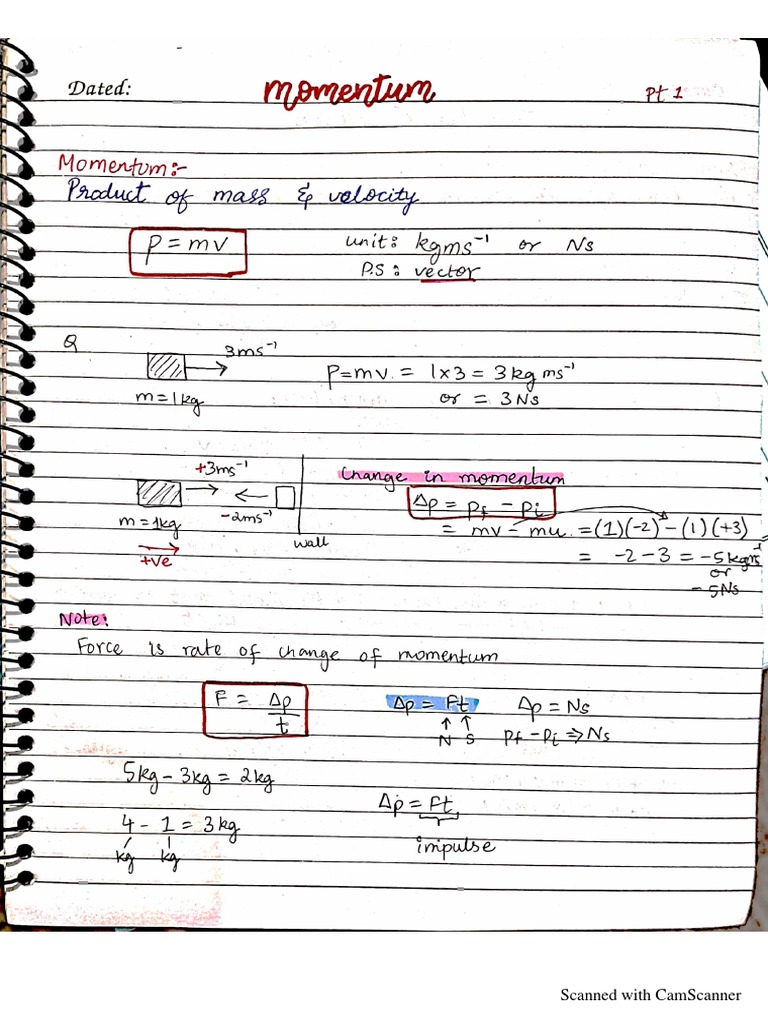 Dated:
momentum
Pt 1
Momentum:-
Product of mass & velocity
P = mv
unit: kgms⁻¹ or Ns
P.S: vector
Q
3ms⁻¹
m=1kg
P=mv = 1×3 = 3kg ms⁻¹
or = 3Ns
+3ms⁻¹
-2ms⁻¹
m=1kg
+ve
wall
Change in momentum
Δp = pf - pi
= mv - mu = (1)(-2) - (1)(+3)
= -2-3 = -5kgms⁻¹
or
-5Ns
Note:
Force is rate of change of momentum
F = Δp/t
Δp = Ft
N S
Δp = Ns
Pf-Pi ⇒ Ns
5kg - 3kg = 2kg
4 - 1 = 3kg
kg kg
Δp = Ft
impulse
Scanned with CamScanner